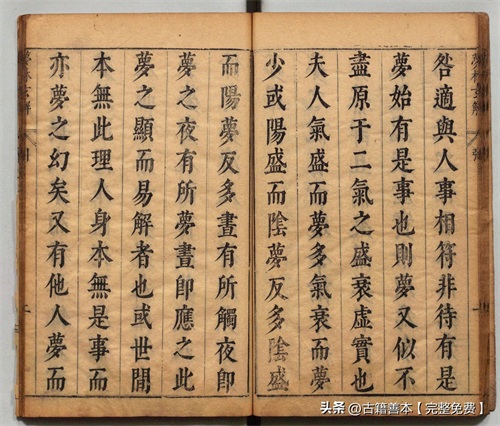 咎適與人事相符非待有是
夢始有是事也則夢又似不
盡原于二氣之盛衰虛實也
夫人氣盛而夢多氣衰而夢
少或陽盛而陰夢反多陰盛
而陽夢反多晝有所觸夜即
夢之夜有所夢晝即應之此
夢之顯而易解者也或世間
本無此理人身本無是事而
亦夢之幻矣又有他人夢而
頭条 @古籍善本【完整免费】